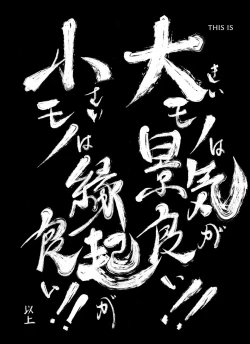 THIS IS
大きいモノは景気が良い!!
小さいモノは縁起が良い!!
以上